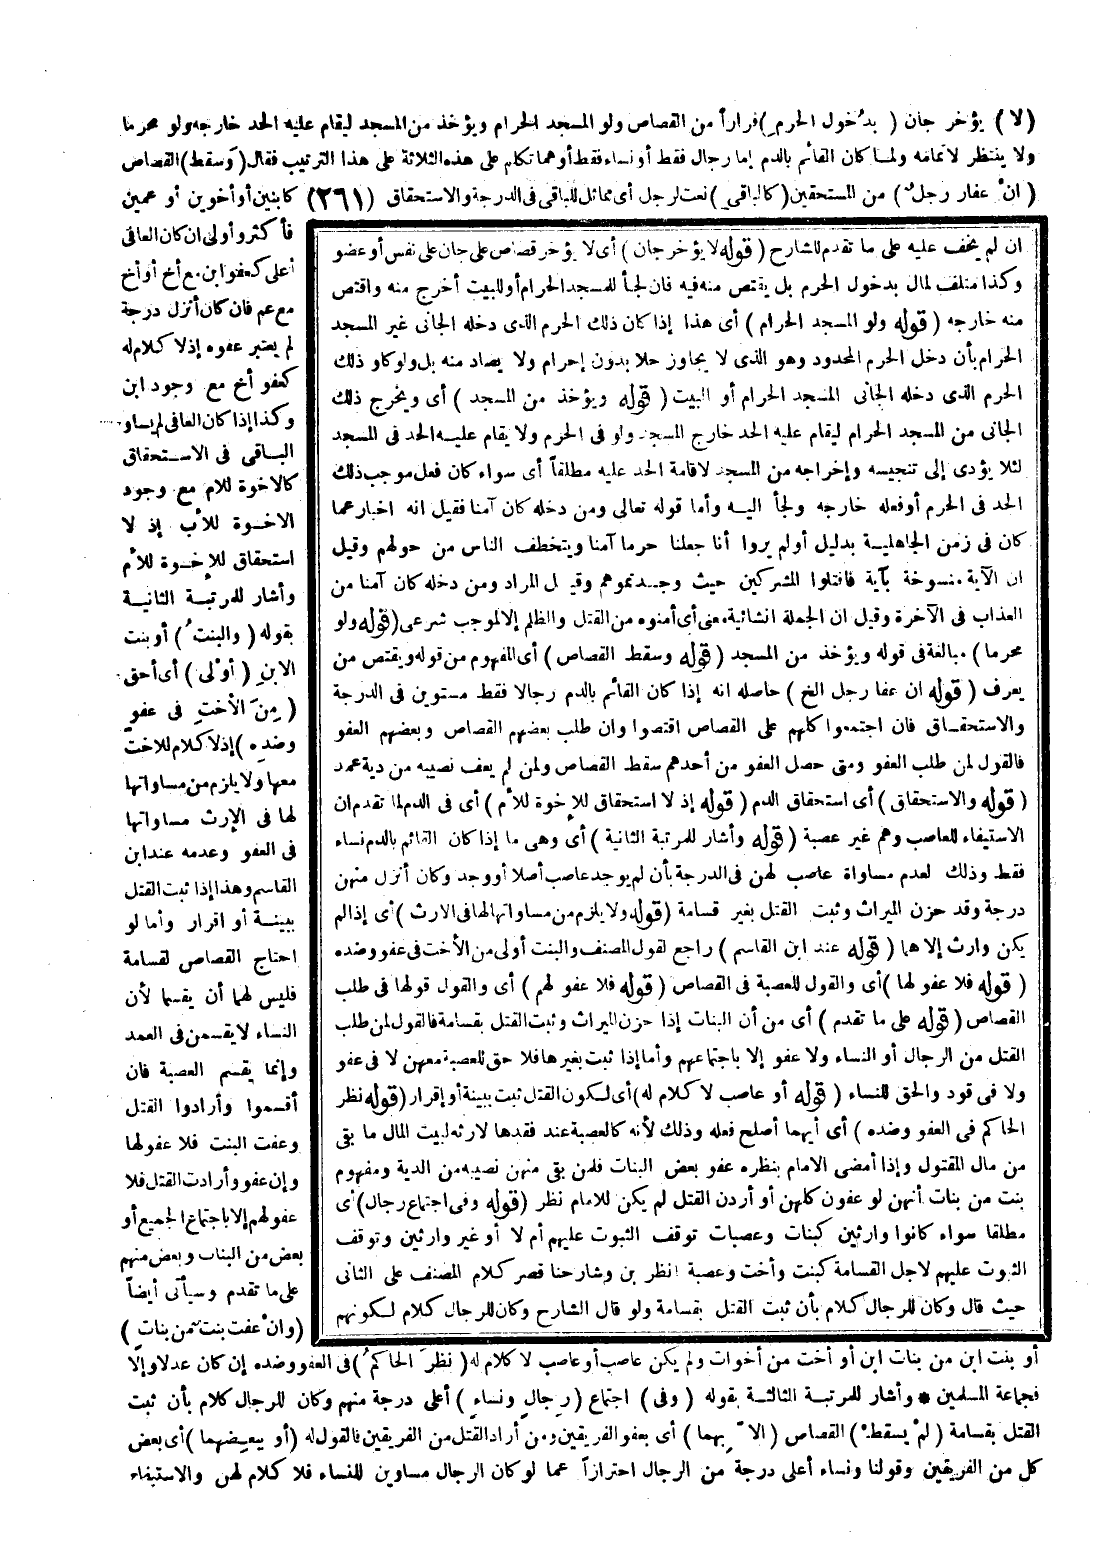 (لا) يؤخر جان (بدُخول الحرمِ) فراراً من القصاص ولو المسجد الحرام ويؤخذ من المسجد ليقام عليه الحد خارجه ولو محرما
ولا ينتظر لاتمامه ولما كان القائم بالدم إما رجال فقط أو نساء فقط أو هما تكلم على هذه الثلاثة على هذا الترتيب فقال (وَسقط) القصاص
(انْ عفا رجلٌ) من المستحقين (كالباقى) نعت لرجل أى مماثل للباقى فى الدرجة والاستحقاق (٢٦١) كابنين أو أخوين أو عمين
فأكثر وأولى ان كان العافى
أعلى كعفو ابن مع أخ أو أخ
مع عم فان كان أنزل درجة
لم يعتبر عفوه إذ لا كلام له
كعفو أخ مع وجود ابن
وكذا إذا كان العافى لم يساو
الباقى فى الاستحقاق
كالاخوة للام مع وجود
الاخوة للأب إذ لا
استحقاق للاخوة للأم
وأشار للمرتبة الثانية
بقوله (والبنتُ) أو بنت
الابنِ (أوْلى) أى أحق
(مِنَ الأختِ فى عفوٍ
وضدِه) إذ لا كلام للاخت
معها ولا يلزم من مساواتها
لها فى الإرث مساواتها
فى العفو وعدمه عند ابن
القاسم وهذا إذا ثبت القتل
ببينة أو اقرار وأما لو
احتاج القصاص لقسامة
فليس لهما أن يقسما لأن
النساء لا يقسمن فى العمد
وإنما يقسم العصبة فان
أقسموا وأرادوا القتل
وعفت البنت فلا عفو لها
وإن عفو وأرادت القتل فلا
عفو لهم إلا باجتماع الجميع أو
بعض من البنات وبعض منهم
على ما تقدم وسيأتى أيضاً
(وانْ عفت بنت من بناتٍ)
ان لم يخف عليه على ما تقدم للشارح (قوله لا يؤخر جان) أى لا يؤخر قصاص على جان على نفس أو عضو
وكذا متلف لمال بدخول الحرم بل يقتص منه فيه فان لجأ للمسجد الحرام أو للبيت أخرج منه واقتص
منه خارجه (قوله ولو المسجد الحرام) أى هذا إذا كان ذلك الحرم الذى دخله الجانى غير المسجد
الحرام بأن دخل الحرم المحدود وهو الذى لا يجاوز حلا بدون إحرام ولا يصاد منه بل ولو كان ذلك
الحرم الذى دخله الجانى المسجد الحرام أو البيت (قوله ويؤخذ من المسجد) أى ويخرج ذلك
الجانى من المسجد الحرام ليقام عليه الحد خارج المسجد ولو فى الحرم ولا يقام عليه الحد فى المسجد
لئلا يؤدى إلى تنجيسه وإخراجه من المسجد لاقامة الحد عليه مطلقاً أى سواء كان فعل موجب ذلك
الحد فى الحرم أو فعله خارجه ولجأ اليه وأما قوله تعالى ومن دخله كان آمنا فقيل انه اخبار عما
كان فى زمن الجاهلية بدليل أولم يروا أنا جعلنا حرما آمنا ويتخطف الناس من حولهم وقيل
ان الآية منسوخة بآية فاقتلوا المشركين حيث وجدتموهم وقيل المراد ومن دخله كان آمنا من
العذاب فى الآخرة وقيل ان الجملة انشائية معنى أى أمنوه من القتل والظلم إلا لموجب شرعى (قوله ولو
محرما) مبالغة فى قوله ويؤخذ من المسجد (قوله وسقط القصاص) أى المفهوم من قوله ويقتص من
يعرف (قوله ان عفا رجل الخ) حاصله انه إذا كان القائم بالدم رجالا فقط مستوين فى الدرجة
والاستحقاق فان اجتمعوا كلهم على القصاص اقتصوا وان طلب بعضهم القصاص وبعضهم العفو
فالقول لمن طلب العفو ومتى حصل العفو من أحدهم سقط القصاص ولمن لم يعف نصيبه من دية عمد
(قوله والاستحقاق) أى استحقاق الدم (قوله إذ لا استحقاق للإخوة للأم) أى فى الدم لما تقدم ان
الاستيفاء للعاصب وهم غير عصبة (قوله وأشار للمرتبة الثانية) أى وهى ما إذا كان القائم بالدم نساء
فقط وذلك لعدم مساواة عاصب لهن فى الدرجة بأن لم يوجد عاصب أصلا أو وجد وكان أنزل منهن
درجة وقد حزن الميراث وثبت القتل بغير قسامة (قوله ولا يلزم من مساواتها لها فى الارث) أى إذا لم
يكن وارث إلا هما (قوله عند ابن القاسم) راجع لقول المصنف والبنت أولى من الأخت فى عفو وضده
(قوله فلا عفو لها) أى والقول للعصبة فى القصاص (قوله فلا عفو لهم) أى والقول قولها فى طلب
القصاص (قوله على ما تقدم) أى من أن البنات إذا حزن الميراث وثبت القتل بقسامة فالقول لمن طلب
القتل من الرجال أو النساء ولا عفو إلا باجتماعهم وأما إذا ثبت بغيرها فلا حق للعصبة معهن لا فى عفو
ولا فى قود والحق للنساء (قوله أو عاصب لا كلام له) أى لكون القتل ثبت ببينة أو إقرار (قوله نظر
الحاكم فى العفو وضده) أى أيهما أصلح فعله وذلك لأنه كالعصبة عند فقدها لارثه لبيت المال ما بقى
من مال المقتول وإذا أمضى الامام بنظره عفو بعض البنات فلمن بقى منهن نصيبه من الدية ومفهوم
بنت من بنات أنهن لو عفون كلهن أو أردن القتل لم يكن للامام نظر (قوله وفى اجتماع رجال) أى
مطلقا سواء كانوا وارثين كبنات وعصبات توقف الثبوت عليهم أم لا أو غير وارثين وتوقف
الثبوت عليهم لاجل القسامة كبنت وأخت وعصبة انظر بن وشارحنا قصر كلام المصنف على الثانى
حيث قال وكان للرجال كلام بأن ثبت القتل بقسامة ولو قال الشارح وكان للرجال كلام لكونهم
أو بنت ابن من بنات ابن أو أخت من أخوات ولم يكن عاصب أو عاصب لا كلام له (نظرَ الحاكمُ) فى العفو وضده إن كان عدلا وإلا
فجماعة المسلمين * وأشار للمرتبة الثالثة بقوله (وفى) اجتماع (رجالٍ ونساءٍ) أعلى درجة منهم وكان للرجال كلام بأن ثبت
القتل بقسامة (لمْ يسقطْ) القصاص (الاَّ بهما) أى بعفو الفريقين ومن أراد القتل من الفريقين فالقول له (أو ببعضهما) أى بعض
كل من الفريقين وقولنا ونساء أعلى درجة من الرجال احترازاً عما لو كان الرجال مساوين للنساء فلا كلام لهن والاستيفاء